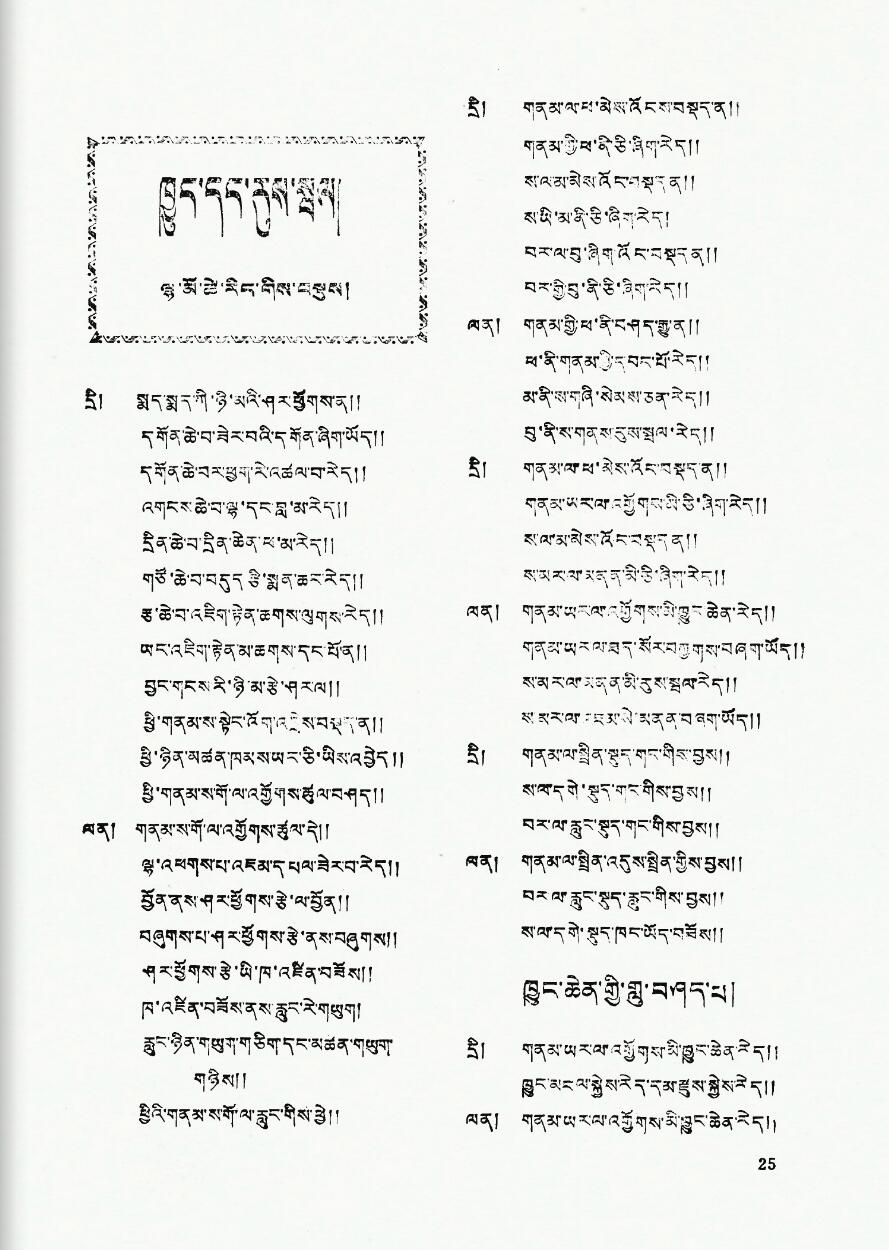 ཁྱུང་དང་རུས་སྦལ།
ལྷ་མོ་ཚེ་རིང་གིས་བསྡུས།
དྲི། སྨད་སྨད་ཀི་ཉི་མའི་ཤར་ཕྱོགས་ན།།
དགོན་ཆེ་བ་ཟེར་བའི་དགོན་ཞིག་ཡོད།།
དགོན་ཆེ་བར་ཕྱག་རེ་འཚལ་བ་རེད།།
འགངས་ཆེ་བ་ལྷ་དང་བླ་མ་རེད།།
དྲིན་ཆེ་བ་དྲིན་ཆེན་ཕ་མ་རེད།།
གཙོ་ཆེ་བ་བདུད་རྩི་སྨན་ཆར་རེད།།
རྩ་ཆེ་བ་འཇིག་རྟེན་ཆགས་ལུགས་རེད།།
ཡང་འཇིག་རྟེན་མ་ཆགས་དང་པོ་ན།།
བྱང་གངས་རི་ཉི་མ་རྩེ་ཤར་ལ།།
ཕྱི་གནམ་ས་སྟེང་འོག་
ཕྱི་ཉིན་མཚན་ཁམས་ཡར་ཅི་ཡིས་འབྱེད།།
ཕྱི་གནམ་ས་གོ་ལ་འགྱོགས་ཚུལ་བཤད།།
ལན། གནམ་ས་གོ་ལ་འགྱོགས་ཚུལ་དེ།།
ལྷ་འཕགས་པ་འཇམ་དཔལ་ཟེར་བ་རེད།།
བྱོན་ནས་ཤར་ཕྱོགས་རྩེ་ལ་བྱོན།།
བཞུགས་པ་ཤར་ཕྱོགས་རྩེ་ནས་བཞུགས།།
ཤར་ཕྱོགས་རྩེ་ཡི་ཁ་འཛིན་བཟོས།།
ཁ་འཛིན་བཟོས་ནས་རླུང་རེ་གཡུག།
རླུང་ཉིན་གཡུག་གཅིག་དང་མཚན་གཡུག
གཉིས།།
ཕྱིའི་གནམ་ས་གོ་ལ་རླུང་གིས་ཕྱེ།།
དྲི། གནམ་ལ་ཕ་མེས་འོངས་བསྡད་ན།།
གནམ་གྱི་ཕ་ནི་ཅི་ཞིག་རེད།།
ས་ལ་མ་མེས་འོང་བསྡད་ན།།
ས་ཡི་མ་ནི་ཅི་ཞིག་རེད།
བར་ལ་བུ་ཞིག་འོང་བསྡད་ན།།
བར་གྱི་བུ་ནི་ཅི་ཞིག་རེད།།
ལན། གནམ་གྱི་ཕ་ནི་བཤད་རྒྱུ་ན།།
ཕ་ནི་གནམ་གྱི་དབང་པོ་རེད།།
མ་ནི་ས་གཞི་སེམས་ཅན་རེད།།
བུ་ནི་ས་གནས་རུས་སྦལ་རེད།།
དྲི། གནམ་ལ་ཕ་མེས་འོང་བསྡད་ན།།
གནམ་ཡར་ལ་འགྱོགས་མི་ཅི་ཞིག་རེད།།
ས་ལ་མ་མེས་འོང་བསྡད་ན།།
ས་མར་ལ་མནན་མི་ཅི་ཞིག་རེད།།
ལན། གནམ་ཡར་ལ་འགྱོགས་མི་ཁྱུང་ཆེན་རེད།།
གནམ་ཡར་ལ་ བཞག་ཡོད།།
ས་མར་ལ་མནན་མི་རུས་སྦལ་རེད།།
ས་མར་ལ་ མནན་བཞག་ཡོད།།
དྲི། གནམ་ལ་སྤྲིན་སྡུད་གང་གིས་བྱས།།
ས་ལ་དགེ་སྡུད་གང་གིས་བྱས།།
བར་ལ་རླུང་སྡུད་གང་གིས་བྱས།།
ལན། གནམ་ལ་སྤྲིན་འདུས་སྤྲིན་གྱིས་བྱས།།
བར་ལ་རླུང་སྡུད་རླུང་གིས་བྱས།།
ས་ལ་དགེ་སྡུད་ཁང་ཡོད་བཟོས།།
ཁྱུང་ཆེན་གྱི་གླུ་བཤད་པ།
དྲི། གནམ་ཡར་ལ་འགྱོགས་མི་ཁྱུང་ཆེན་རེད།།
ཁྱུང་མངལ་སྐྱེས་རེད་དམ་རྫུས་སྐྱེས་རེད།།
ལན། གནམ་ཡར་ལ་འགྱོགས་མི་ཁྱུང་ཆེན་རེད།།
25